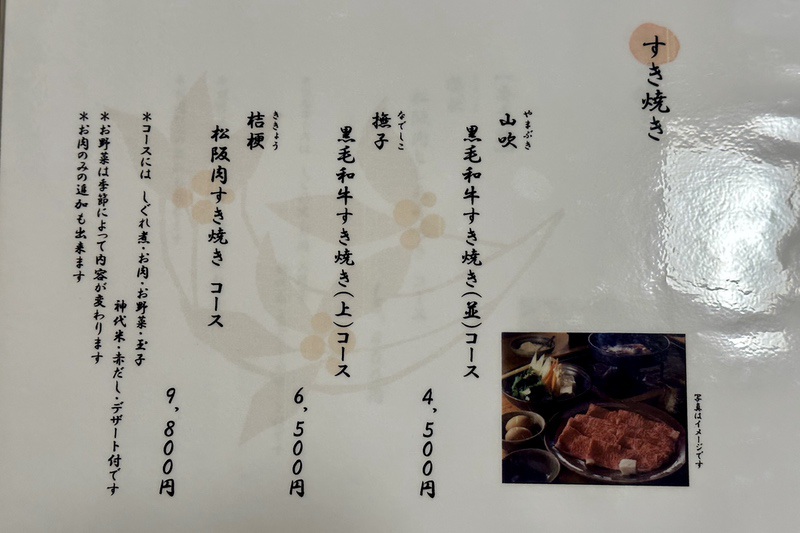 すき焼き
やまぶき
山吹
黒毛和牛すき焼き(並)コース
4,500円
なでしこ
撫子
黒毛和牛すき焼き(上)コース
6,500円
ききょう
桔梗
松阪肉すき焼き コース
9,800円
*コースには しぐれ煮・お肉・お野菜・玉子
神代米・赤だし・デザート付です
*お野菜は季節によって内容が変わります
*お肉のみの追加も出来ます
写真はイメージです